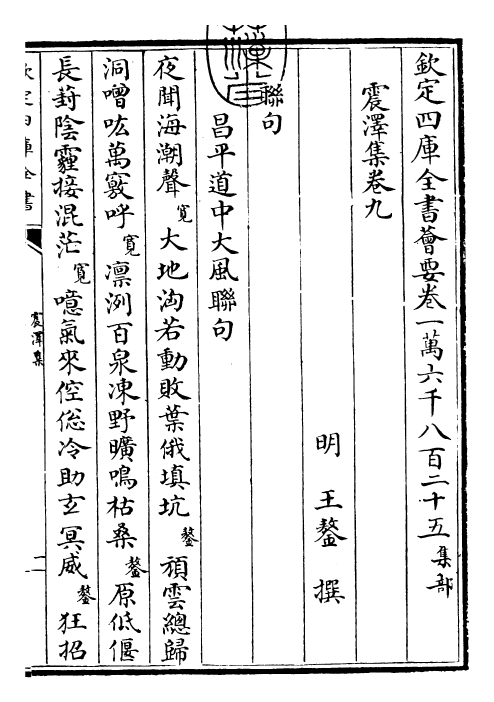 欽定四庫全書薈要卷一萬六千八百二十五集部
震澤集卷九
明王鏊撰
聯句
昌平道中大風聯句
夜聞海潮聲寛大地洶若動敗葉俄填坑鏊頑雲總歸
洞噌吰萬竅呼寛凛冽百泉凍野曠鳴枯桑鏊原低偃
長葑陰霾接混茫寛噫氣來倥偬冷助玄冥威鏊狂招
欽定四庫全書
震澤集
一